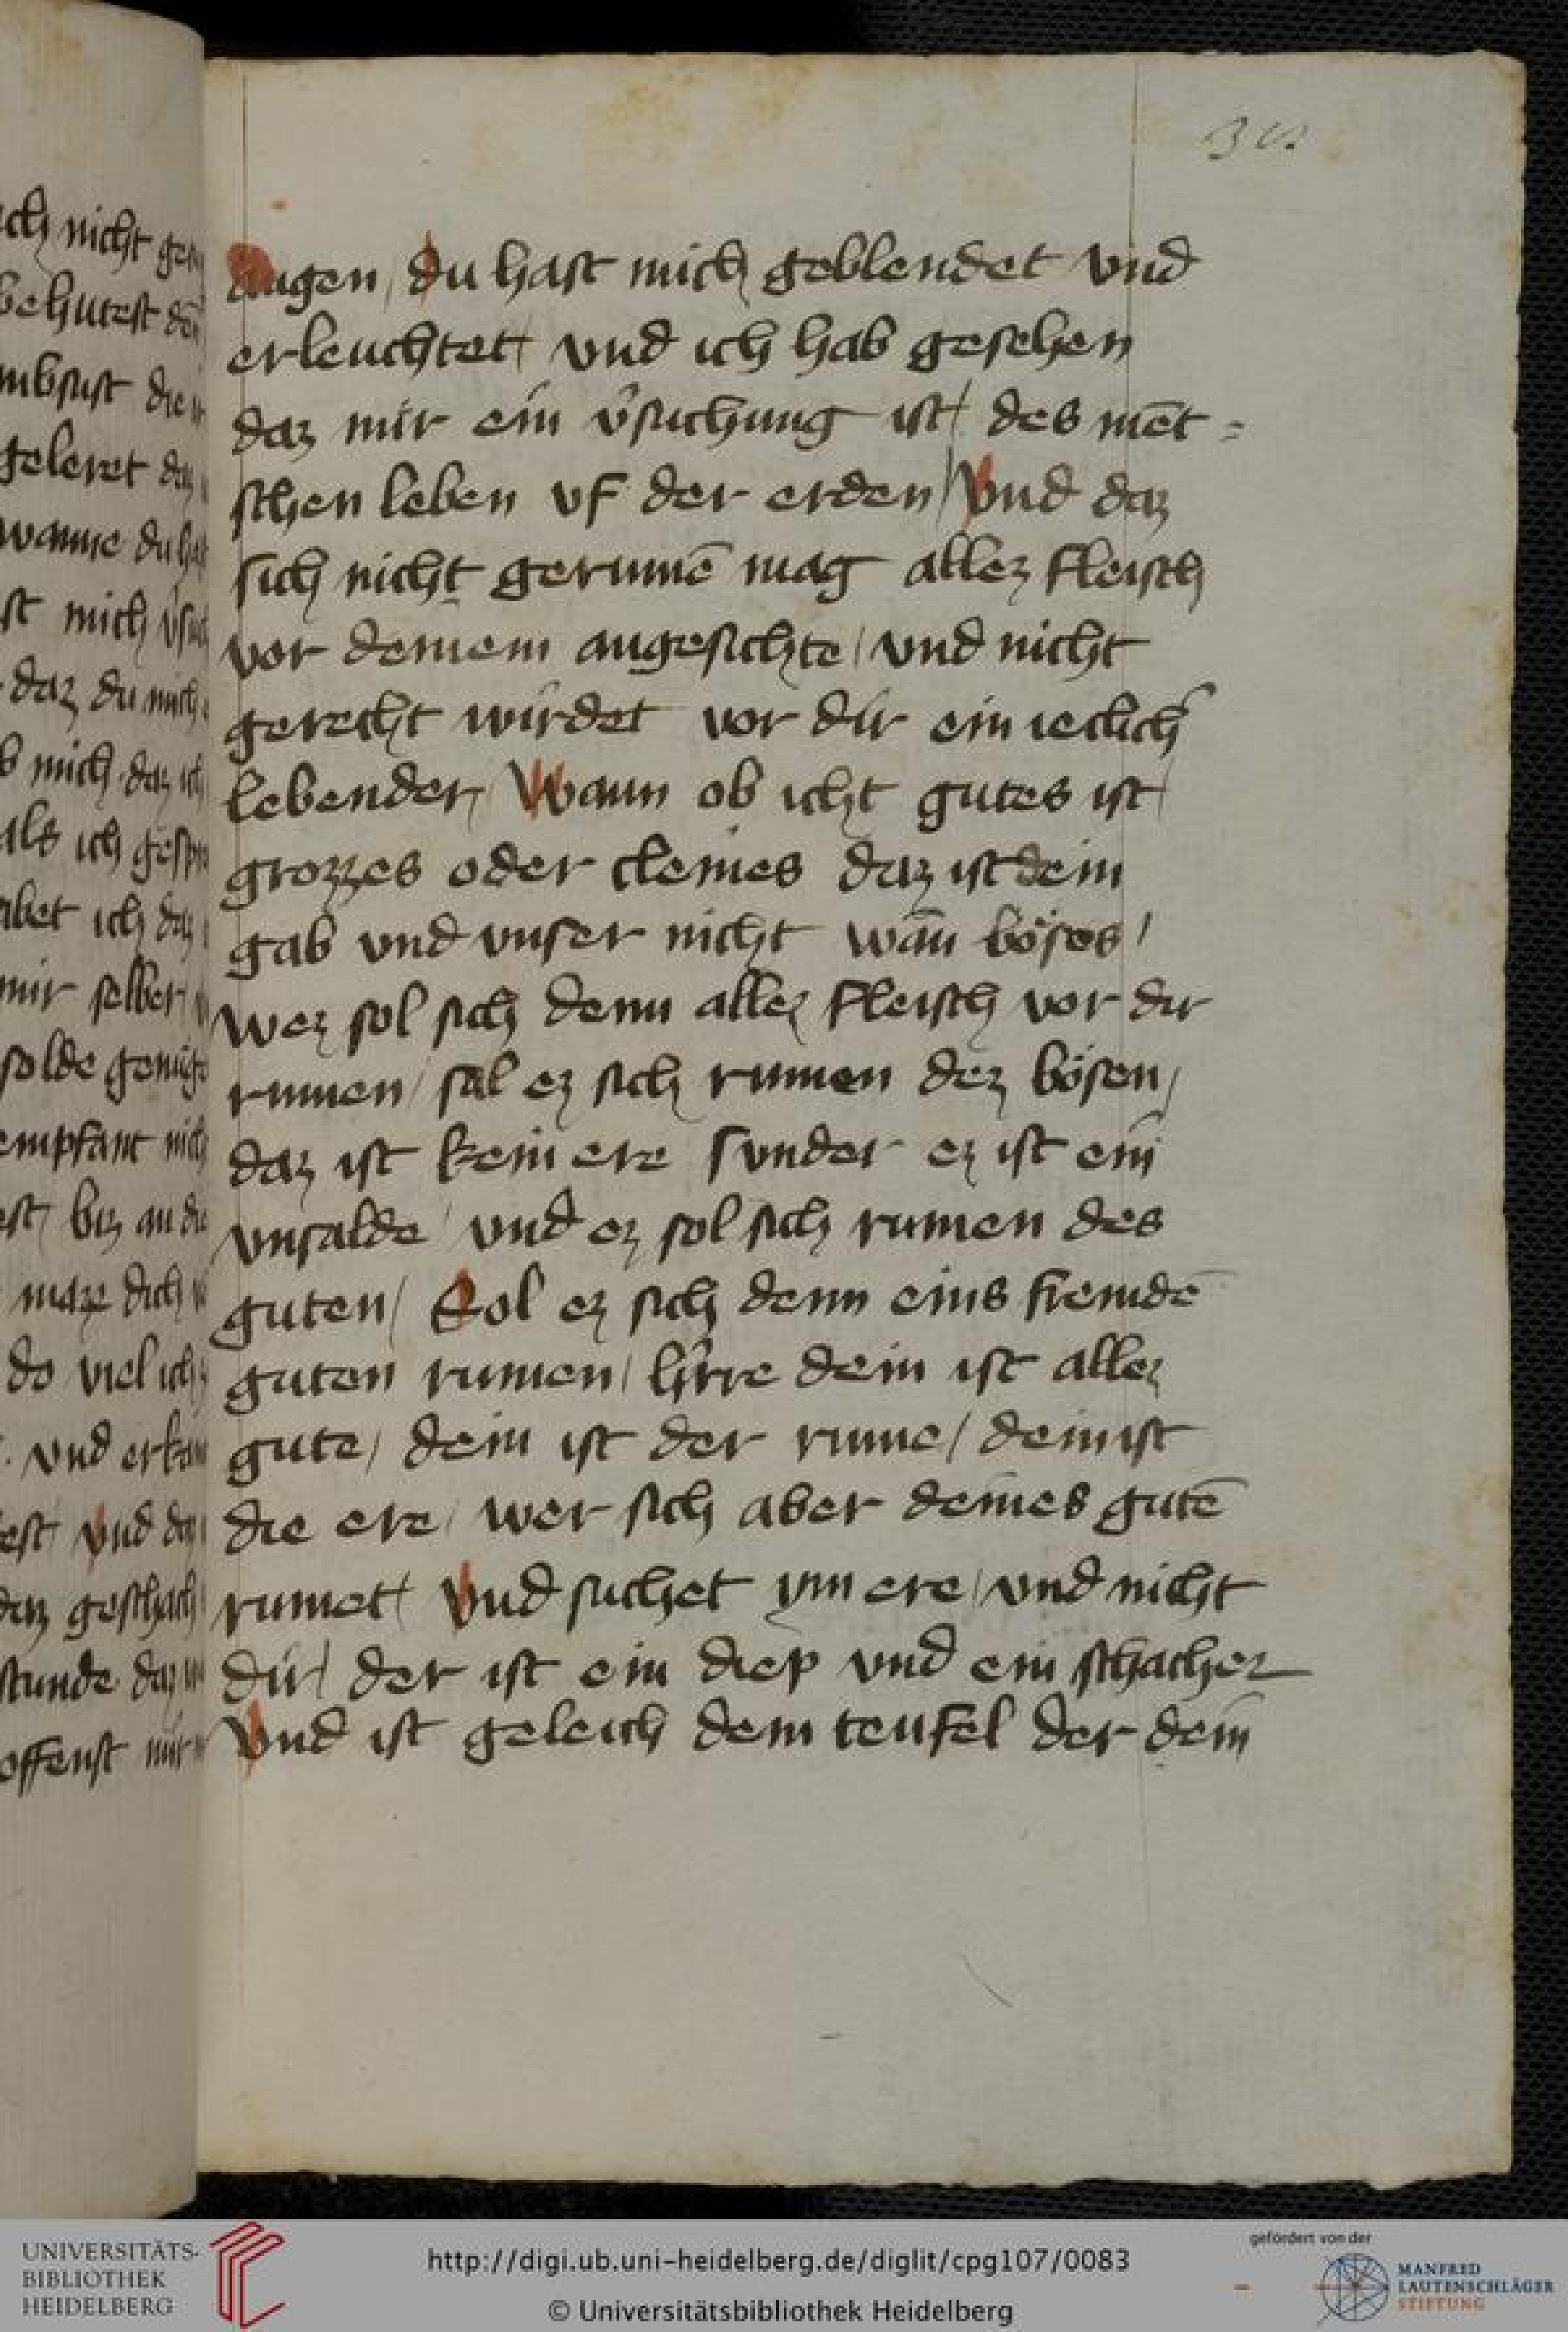 30
augen / du hast mich geblendet vnd
erleuchtet / vnd ich hab gesehen
daz mir ein v͛suchung ist / des me͞t =
schen leben vf der erden / Vnd daz
sich nicht gerume͞ mag allez fleisch
vor deinem angesichte / vnd nicht
gerecht wirdet vor dir ein ieclich͛
lebender / Wann ob icht gutes ist /
grozzes oder cleines daz ist dein
gab vnd vnser nicht wa͞n böses /
wez sol sich denn allez fleisch vor dir
rumen / sal ez sich rumen dez bösen /
daz ist kein ere sunder ez ist ein
vnsalde / vnd ez sol sich rumen des
guten / Sol ez sich denn eins fremde͞
guten rumen / h͛rre dein ist allez
gute / dein ist der rume / dein ist
die ere / wer sich aber deines gute͞
rumet / Vnd suchet ym ere / vnd nicht
dir / der ist ein diep vnd ein schacher
Vnd ist geleich dem teufel der dein
UNIVERSITÄTS-
BIBLIOTHEK
HEIDELBERG
http://digi.ub.uni-heidelberg.de/diglit/cpg107/0083
© Universitätsbibliothek Heidelberg
gefördert von der
MANFRED
LAUTENSCHLÄGER
STIFTUNG